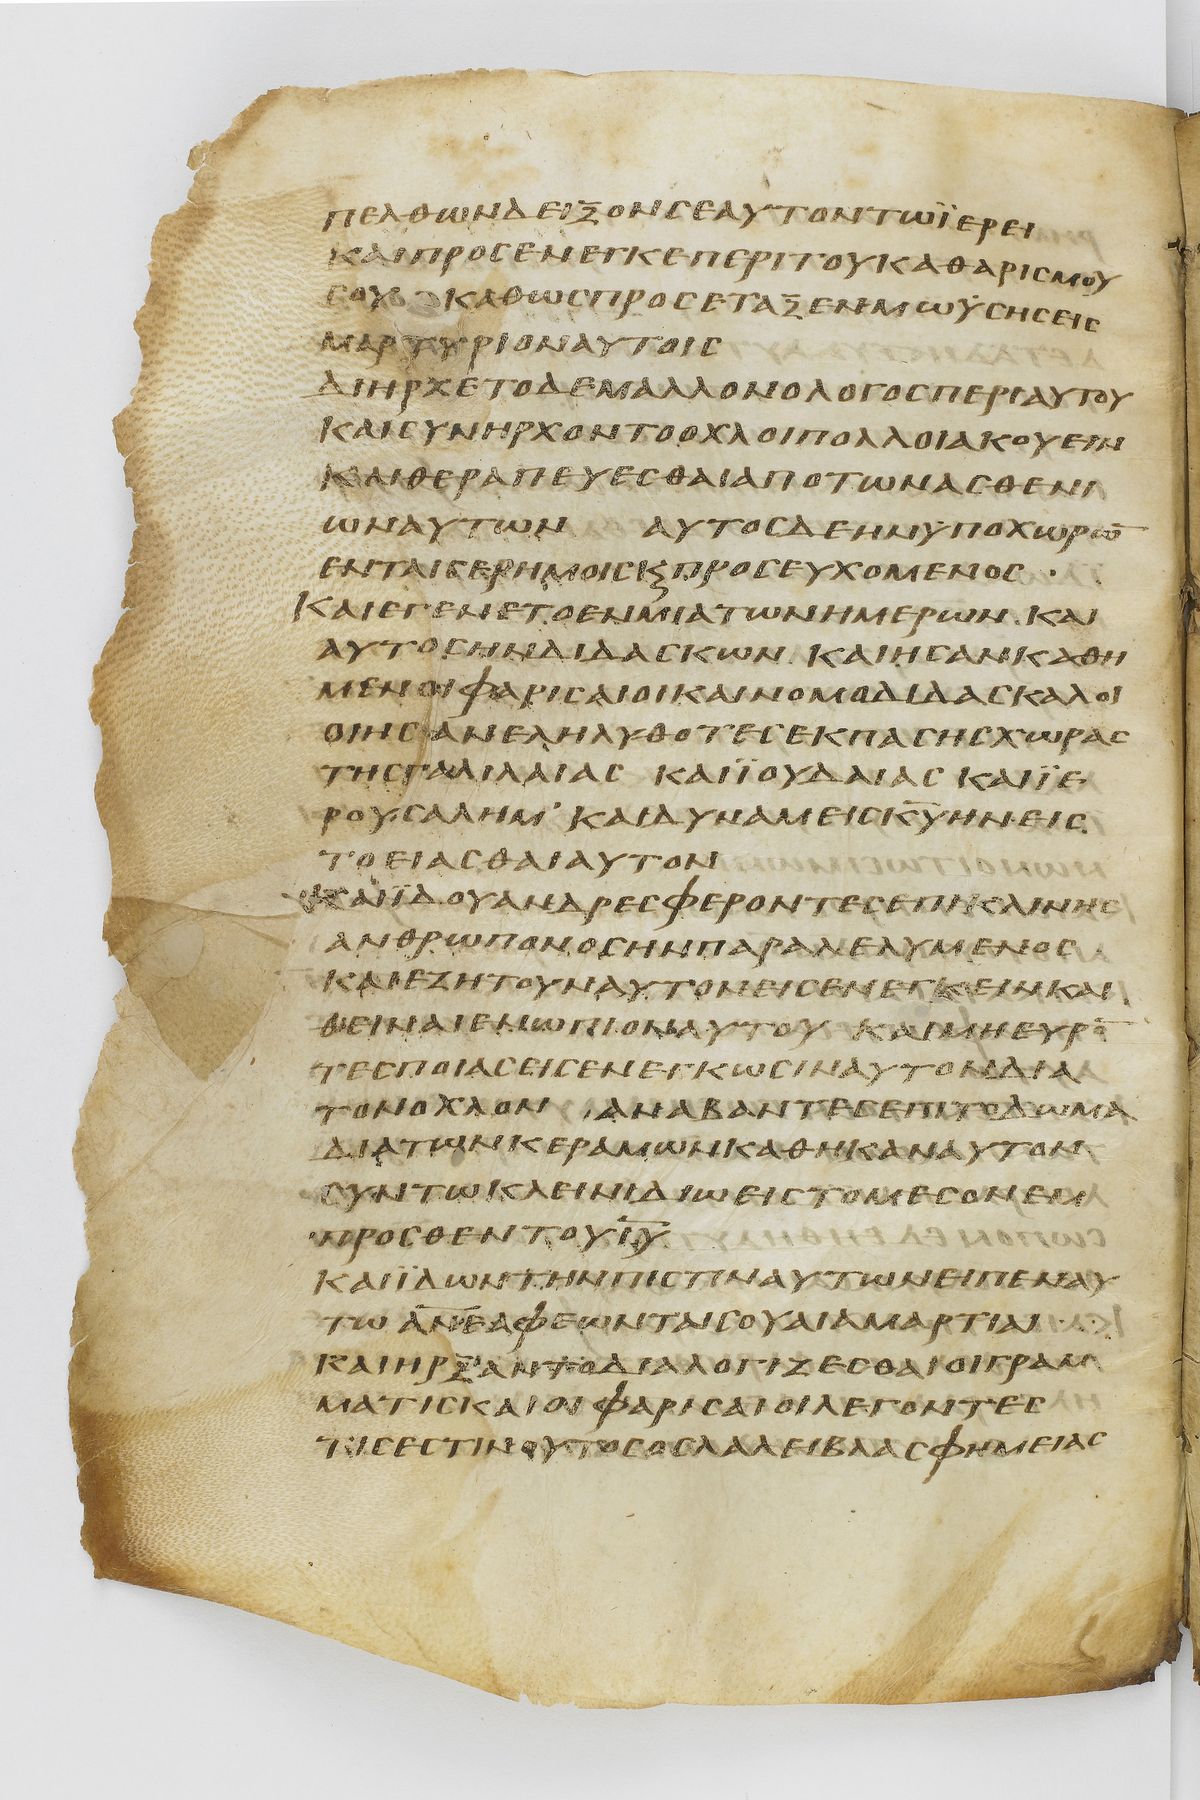 ΠΕΛΘΩΝΔΕΙΞΟΝΣΕΑΥΤΟΝΤΩΪΕΡΕΙ
ΚΑΙΠΡΟΣΕΝΕΓΚΕΠΕΡΙΤΟΥΚΑΘΑΡΙΣΜΟΥ
ΣΟΥ ΚΑΘΩΣΠΡΟΣΕΤΑΞΕΝΜΩΫΣΗΣΕΙΣ
ΜΑΡΤΥΡΙΟΝΑΥΤΟΙΣ
ΔΙΗΡΧΕΤΟΔΕΜΑΛΛΟΝΟΛΟΓΟΣΠΕΡΙΑΥΤΟΥ
ΚΑΙΣΥΝΗΡΧΟΝΤΟΟΧΛΟΙΠΟΛΛΟΙΑΚΟΥΕΙΝ
ΚΑΙΘΕΡΑΠΕΥΕΣΘΑΙΑΠΟΤΩΝΑΣΘΕΝΙ
ΩΝΑΥΤΩΝ ΑΥΤΟΣΔΕΗΝΫΠΟΧΩΡΩ̅
ΕΝΤΑΙΣΕΡΗΜΟΙΣϏΠΡΟΣΕΥΧΟΜΕΝΟΣ·
ΚΑΙΕΓΕΝΕΤΟΕΝΜΙΑΤΩΝΗΜΕΡΩΝ ΚΑΙ
ΑΥΤΟΣΗΝΔΙΔΑΣΚΩΝ ΚΑΙΗΣΑΝΚΑΘΗ
ΜΕΝΟΙΦΑΡΙΣΑΙΟΙΚΑΙΝΟΜΟΔΙΔΑΣΚΑΛΟΙ
ΟΙΗΣΑΝΕΛΗΛΥΘΟΤΕΣΕΚΠΑΣΗΣΧΩΡΑΣ
ΤΗΣΓΑΛΙΛΑΙΑΣ ΚΑΙΪΟΥΔΑΙΑΣ ΚΑΙΪΕ
ΡΟΥΣΑΛΗΜ’ ΚΑΙΔΥΝΑΜΕΙΣΚ̅Υ̅ΗΝΕΙΣ
ΤΟΕΙΑΣΘΑΙΑΥΤΟΝ
ΚΑΙΪΔΟΥΑΝΔΡΕΣΦΕΡΟΝΤΕΣΕΠΙΚΛΙΝΗΣ
ΑΝΘΡΩΠΟΝΟΣΗΝΠΑΡΑΛΕΛΥΜΕΝΟΣ
ΚΑΙΕΖΗΤΟΥΝΑΥΤΟΝΕΙΣΕΝΕΓΚΕΙΝΚΑΙ
ΘΕΙΝΑΙΕΝΩΠΙΟΝΑΥΤΟΥ ΚΑΙΜΗΕΥΡΟ̅
ΤΕΣΠΟΙΑΣΕΙΣΕΝΕΓΚΩΣΙΝΑΥΤΟΝΔΙΑ
ΤΟΝΟΧΛΟΝ ΑΝΑΒΑΝΤΕΣΕΠΙΤΟΔΩΜΑ
ΔΙΑΤΩΝΚΕΡΑΜΩΝΚΑΘΗΚΑΝΑΥΤΟΝ
ΣΥΝΤΩΚΛΕΙΝΙΔΙΩΕΙΣΤΟΜΕΣΟΝΕΜ
ΠΡΟΣΘΕΝΤΟΥΙ̅Υ̅
ΚΑΙΪΔΩΝΤΗΝΠΙΣΤΙΝΑΥΤΩΝΕΙΠΕΝΑΥ
ΤΩ Α̅Ν̅Ε̅ΑΦΕΩΝΤΑΙΣΟΥΑΙΑΜΑΡΤΙΑΙ·
ΚΑΙΗΡΞΑΝΤΟΔΙΑΛΟΓΙΖΕΣΘΑΙΟΙΓΡΑΜ
ΜΑΤΙΣΚΑΙΟΙΦΑΡΙΣΑΙΟΙΛΕΓΟΝΤΕΣ
ΤΙΣΕΣΤΙΝΟΥΤΟΣΟΣΛΑΛΕΙΒΛΑΣΦΗΜΕΙΑΣ